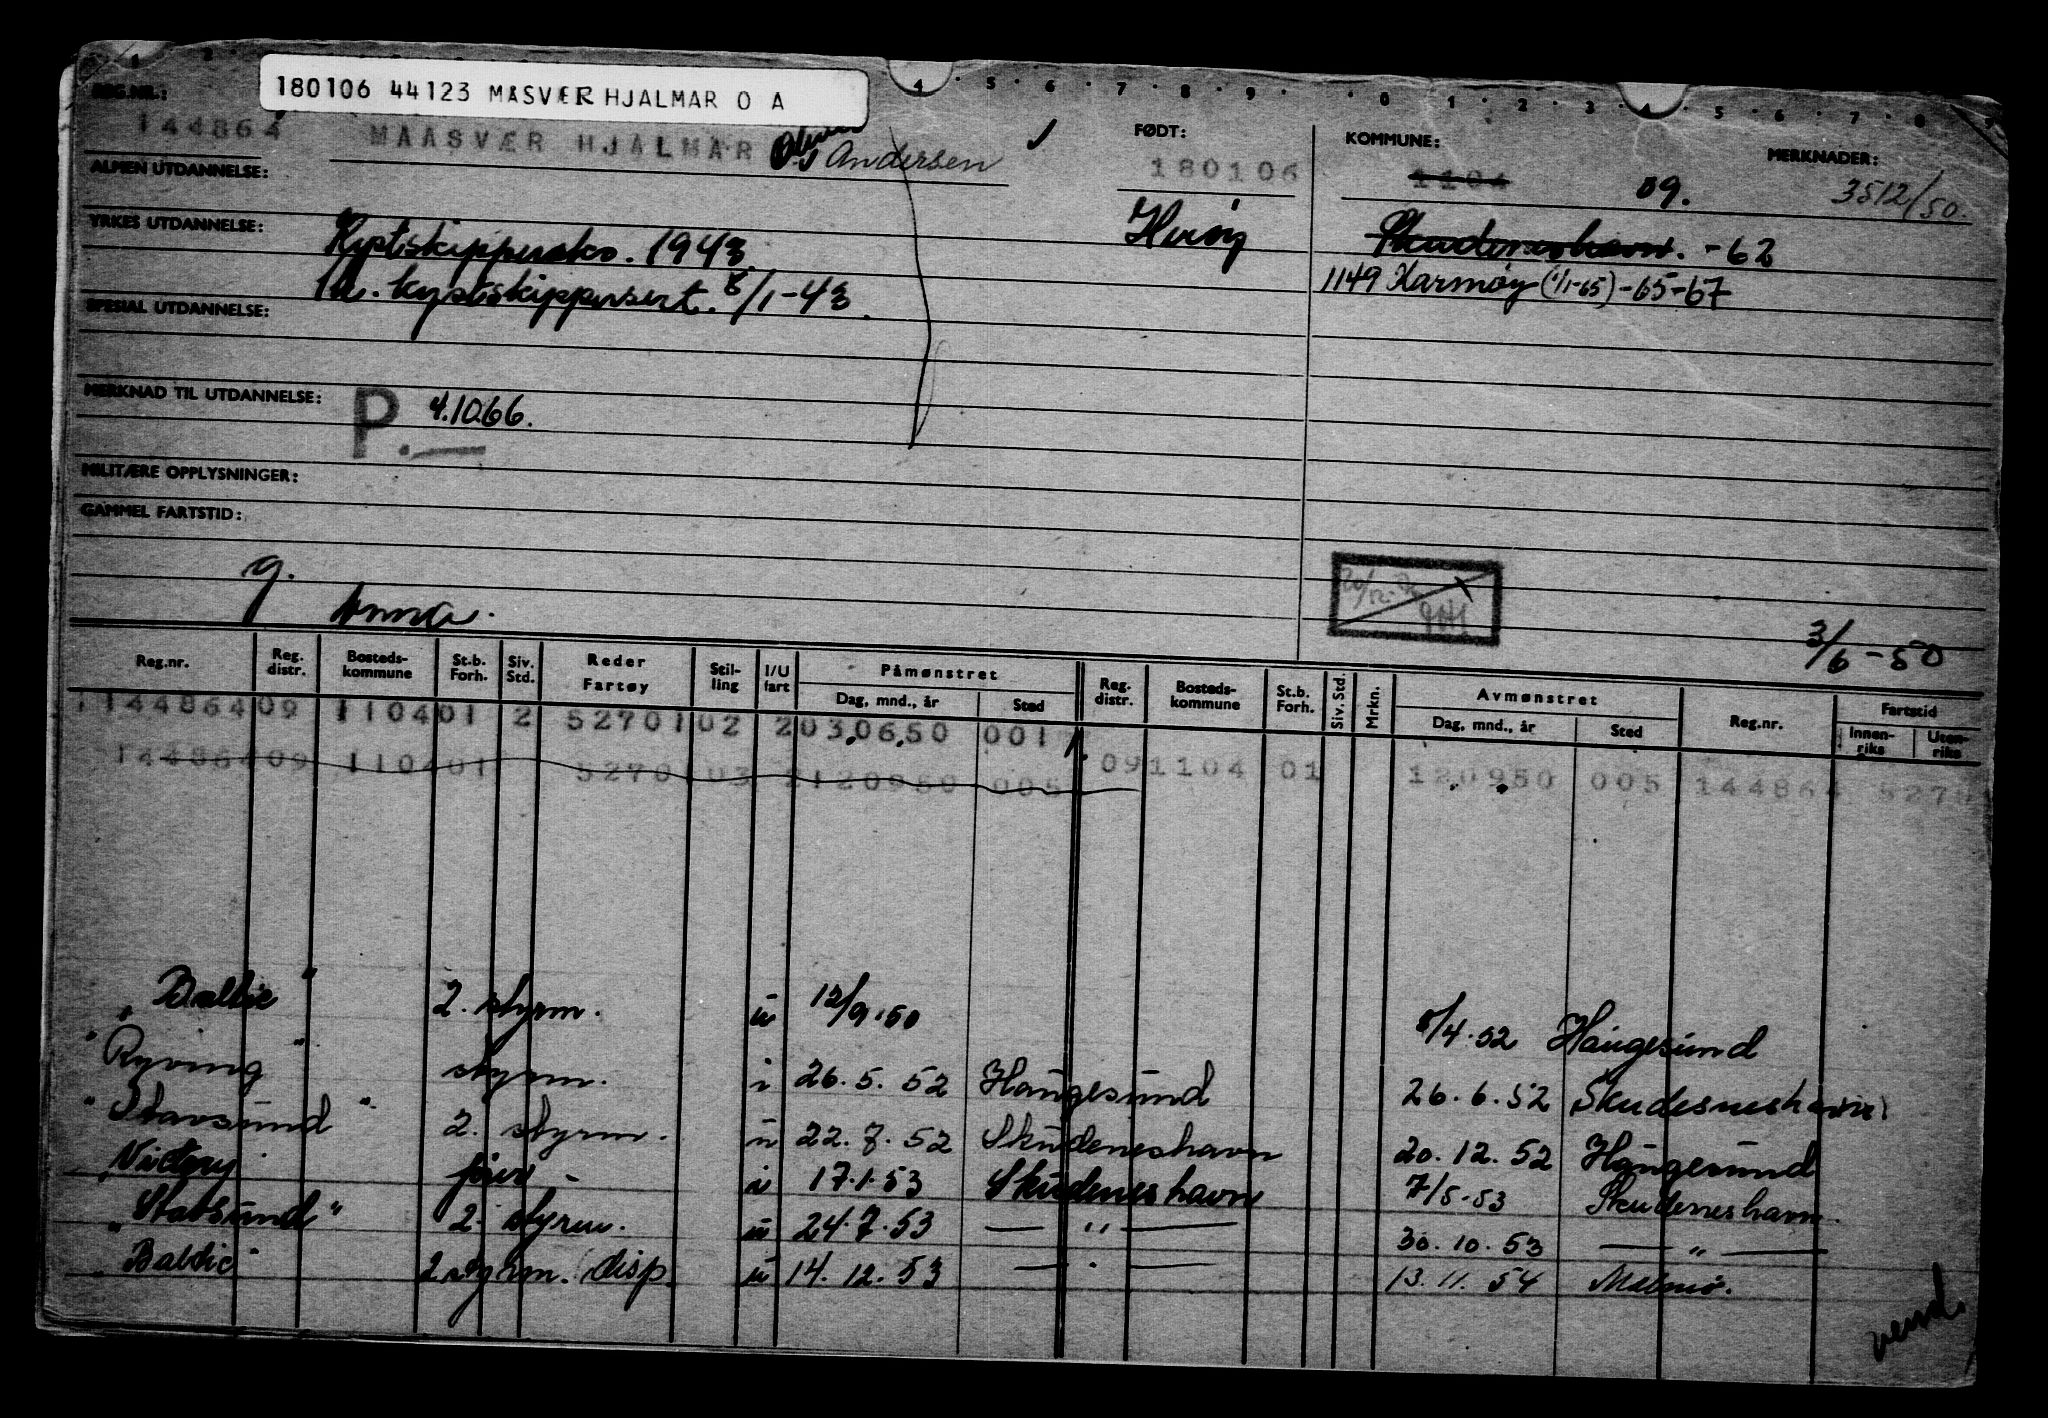 180106 44123 MASVÆR HJALMAR O A
REG.NR.:
144864 MAASVÆR HJALMAR Andersen
FØDT:
180106
Herøy
KOMMUNE:
1104 09.
MERKNADER:
3512/50.
Skudeneshavn. -62
1149 Karmøy (1/1-65) -65-67
ALMEN UTDANNELSE:
YRKES UTDANNELSE:
Kystskippersko. 1943
kystskippersert. 8/1-43.
SPESIAL UTDANNELSE:
MERKNAD TIL UTDANNELSE:
P. 4.10.66.
MILITÆRE OPPLYSNINGER:
GAMMEL FARTSTID:
g. Anna.
3/6-50
Reg.nr. Reg. distr. Bosteds-kommune St.b. Forh. Siv. Std. Reder Fartøy Stil-ling I/U fart Påmønstret Dag, mnd., år Sted Reg. distr. Bosteds-kommune St.b. Forh. Siv. Std. Mrkn. Avmønstret Dag, mnd., år Sted Reg.nr. Fartstid Innen-riks Uten-riks
144864 09 1104 01 2 5270 1 02 2 03.06.50 001
144864 09 1104 01 5270 1 03 2 120950 005 09 1104 01 120950 005 144864 5270
"Baltic" 2. styrm. u 12/9.50 8/4.52 Haugesund
"Ryving" styrm. i 26.5.52 Haugesund 26.6.52 Skudesneshavn
"Stavsund" 2. styrm. u 22.7.52 Skudeneshavn 20.12.52 Haugesund
"Victory i 17.1.53 Skudeneshavn 7/5.53 Skudeneshavn.
"Stavsund" 2. styrm. u 24.7.53 — " — 30.10.53 — " —
"Baltic" 2 styrm. (disp u 14.12.53 — " — 13.11.54 Malmø.
vend